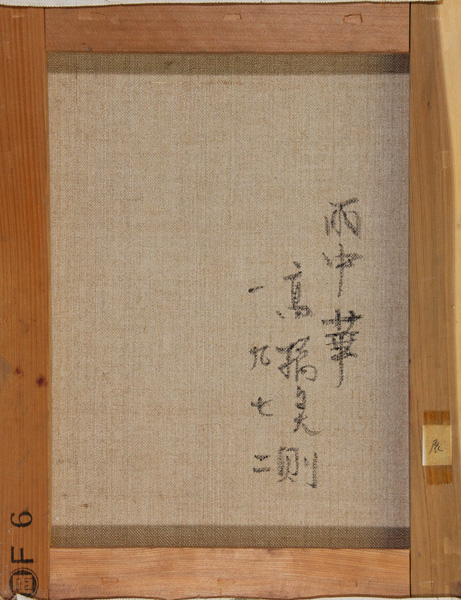 雨中華
高橋美則
一九七二
F6